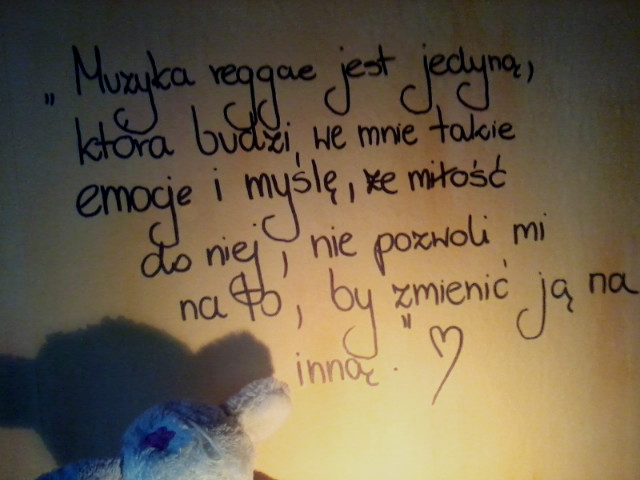 „Muzyka reggae jest jedyną,
która budzi we mnie takie
emocje i myślę, że miłość
do niej, nie pozwoli mi
na to, by zmienić ją na
inną."